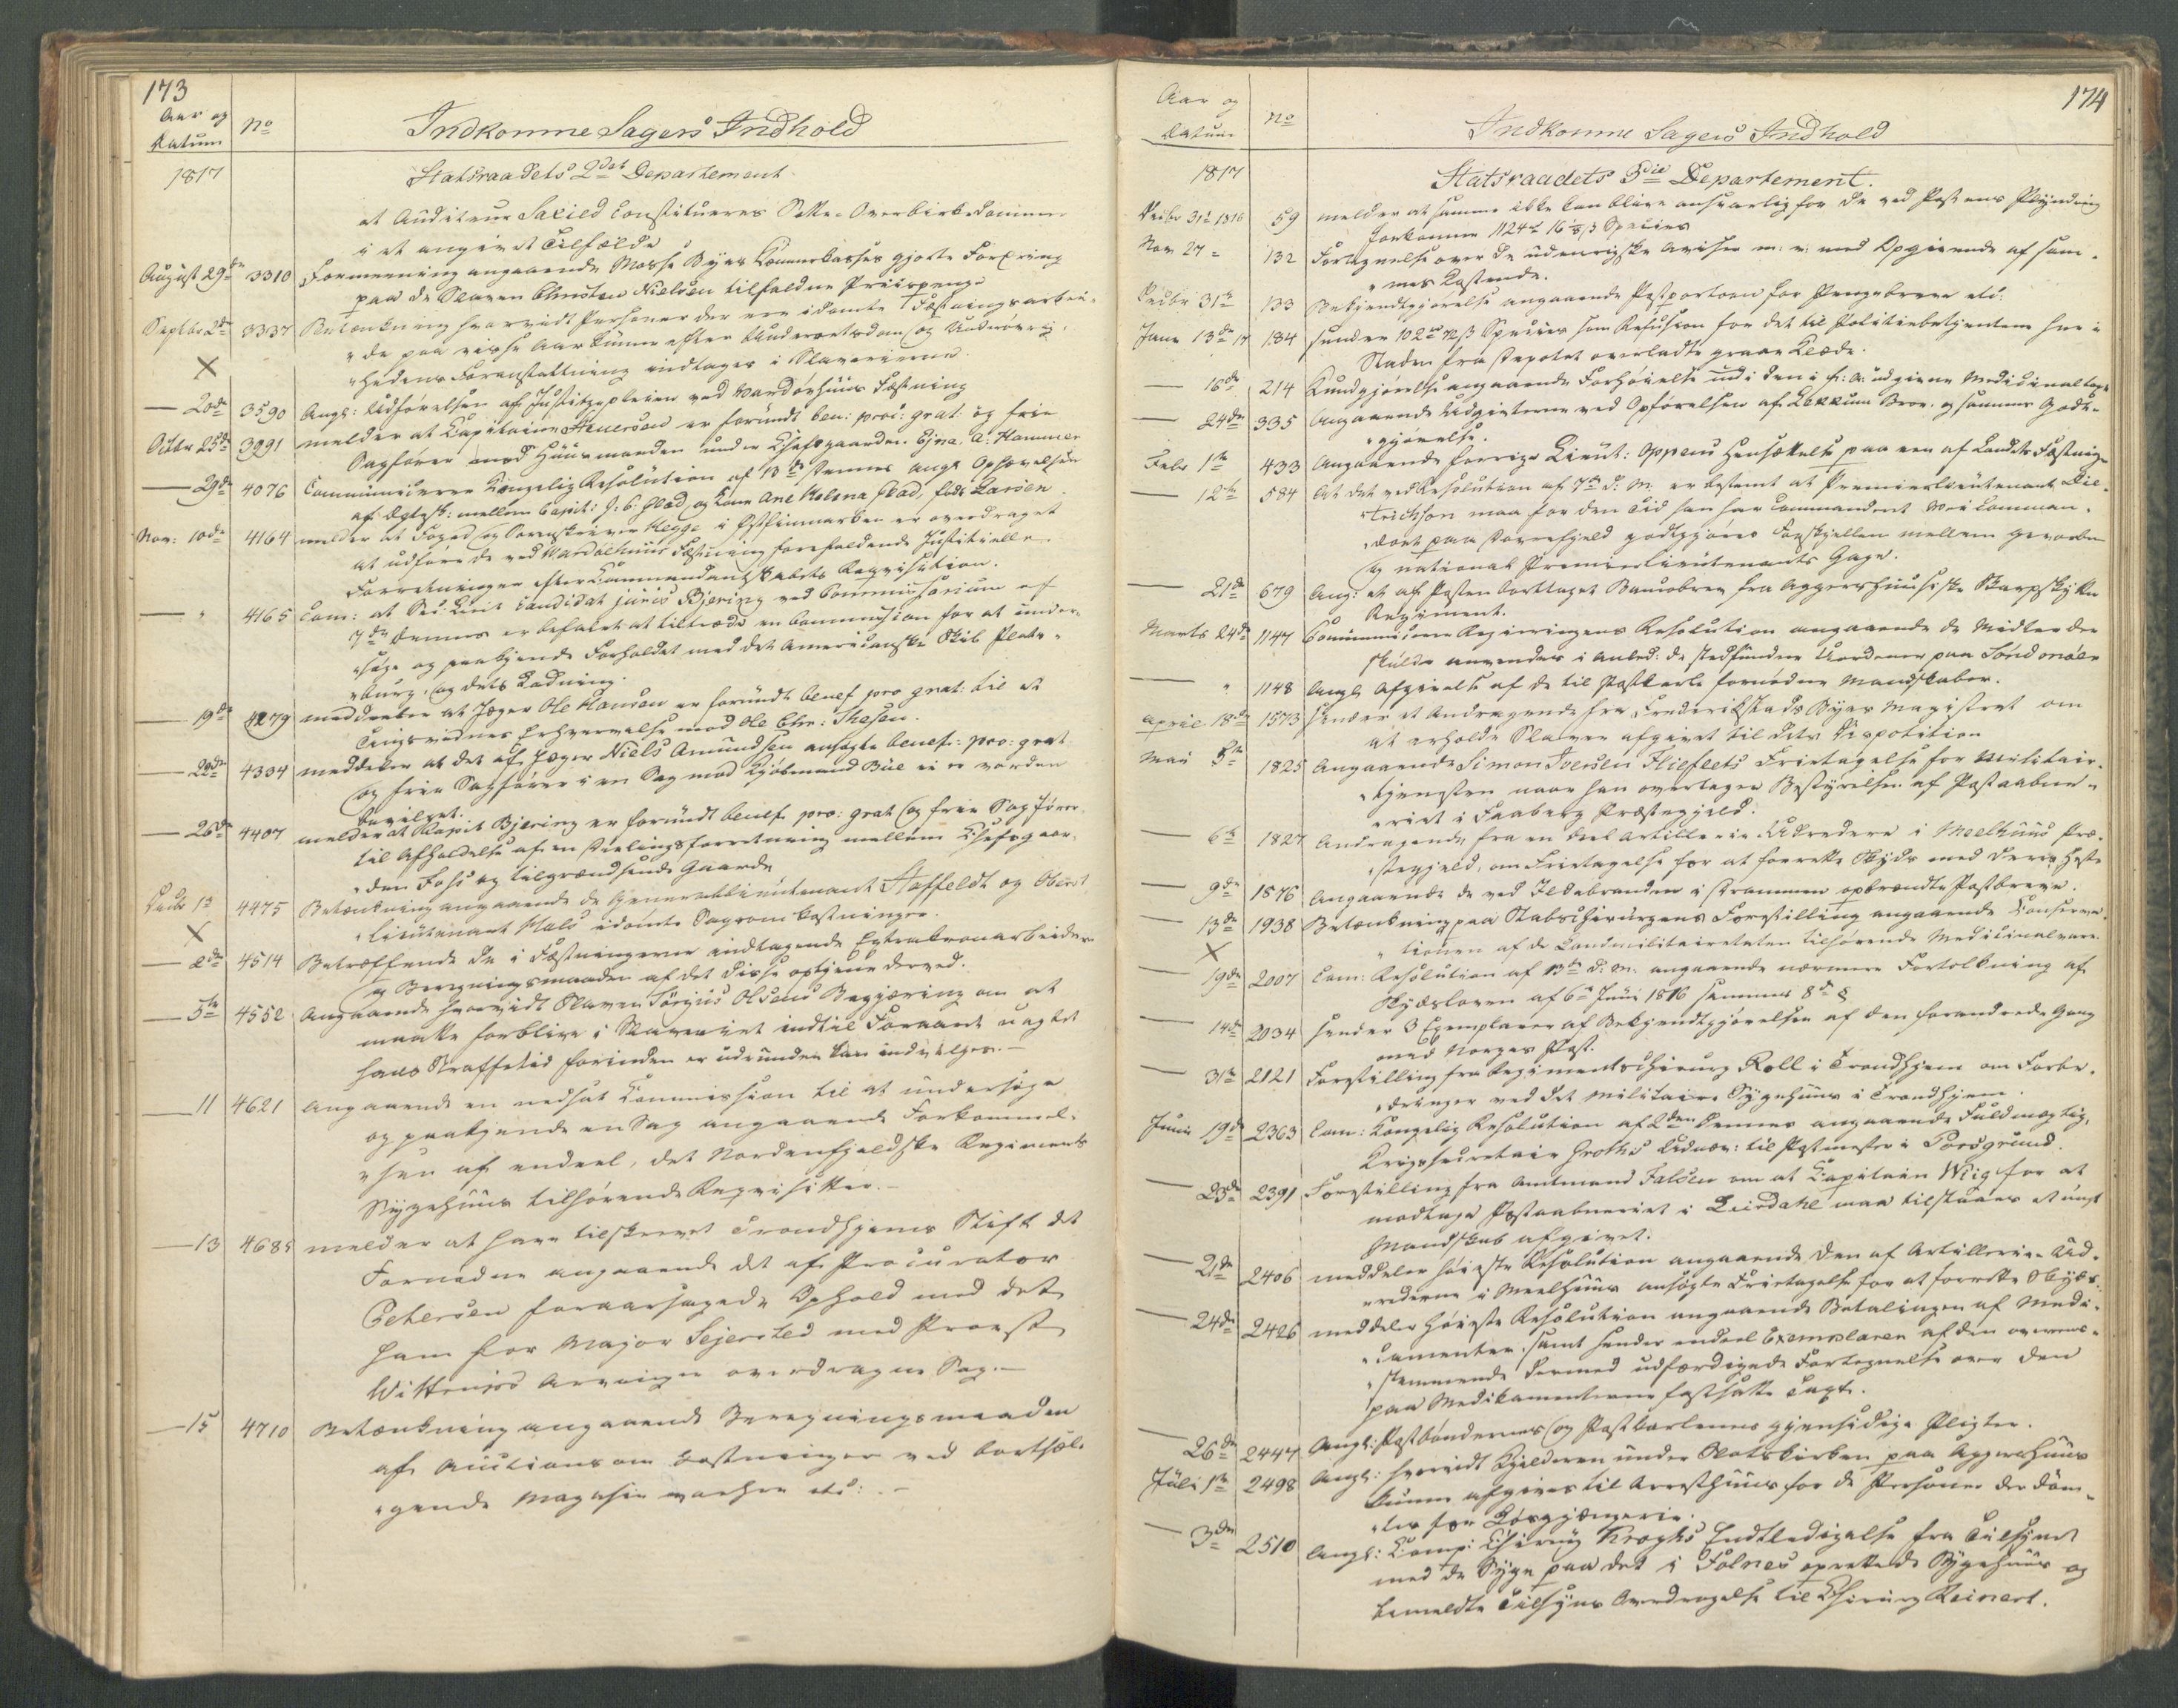 173
Aar og Datum
No
Indkomne Sagers Indhold
1817
Statsraadets 2det Departement
at Auditeur Saxild constitueres Sette-Overbirkedommer
i et angivet Tilfælde
August 29de 3310 Formeening angaaende Mosse Byes Kæmnerkasses gjorte Fordring
paa de Slaven Christen Nielsen tilfaldne Priispenge
Septbr 2de 3337 Betænkning hvorvidt Personer der ere idømte Fæstningsarbei-
"de paa visse Aar kunne efter Underretsdom og Underøvrig-
"hedens Foranstaltning indtages i Slaverierne.
— 20de 3590 Angl: Udførelsen af Justitspleien ved Vardøehuus Fæstning
Octbr 25de 3991 melder at Capitaine Steuersen er forundt ben: proc: grat: og frie
Sagfører mod Huusmanden under Chefsgaarden Ejna A: Hammer
— 29de 4076 Communicerer Kongelig Resolution af 13de dennes angl Ophævelsen
af Ægtesk: mellem Capit: J. C. Gløad og Kone Ane Helena Gløad, født Larsen
Nov: 10de 4164 melder at Foged og Sorenskriver Hegge i Østfinmarken er overdraget
at udføre de ved Wardøehuus Fæstning forefaldende Justitielle
Forretninger efter Commandantskabets Reqvisition.
— " 4165 Com: at Sec: Lieut Candidat juris Bjering ved Commissorium af
7de dennes er befalet at tiltræde en Commission for at under-
"søge og paakjende Forholdet med det Americanske Skib Plats-
"burg, og dets Ladning.
— 19de 4279 meddeeler at Jæger Ole Hansen er forundt benef pro grat: til et
Tingsvidnes Erhvervelse mod Ole Chr: Thesen.
— 22de 4334 meddeler at det af Jæger Niels Amundsen ansøgte benef: pro: grat
og frie Sagfører i en Sag mod Kjøbmand Bue ei er vorden
bevilget.
— 26de 4407 melder at Capit Bjering er forundt benef. pro: grat og frie Sagfører
til Afholdelse af en Delingsforretning mellem Chefsgaar-
"den Foss og tilgrændsende Gaarde
Decbr 1s 4475 Betænkning angaaende de Generallieutenant Staffeldt og Oberst
"lieutenant Hals idømte Sagsomkostninger.
— 2de 4514 Betræffende de i Fæstningerne indtagende Extrakronarbeidere
og Beregningsmaaden af det disse optjene derved.
— 5te 4552 Angaaende hvorvidt Slaven Sørgius Olsens Begjæring om at
maatte forblive i Slaveriet indtil Foraaret uagtet
hans Straffetid forinden er udrunden kan indvilges.—
— 11 4621 angaaende en nedsat Commission til at undersøge
og paakjende en Sag angaaende Forkommel-
"sen af endeel, det Nordenfjeldske Regiments
Sygehuus tilhørende Reqvisitter.—
— 13 4685 melder at have tilskrevet Trondhjems Stift det
Fornødne angaaende det af Procurator
Petersen foraarsagede Ophold med det
ham for Major Sejersted mod Provst
Arvinger overdragne Sag.—
— 15 4710 Betænkning angaaende Beregningsmaaden
af Auctionsomkostninger ved bortsæl-
"gende Magasin varer etc:.—
174
Aar og Datum
No
Indkomne Sagers Indhold
1817
Statsraadets 3die Departement.
Decbr 31te 1816 59 melder at samme ikke kan blive ansvarlig for de ved Postens Plyndring
forkomne 1124 16 Species
Nov 27 = 132 Fortegnelse over de udenrigske Aviser m: v: med Opgivende af sam-
"mes Kostende.
Decbr 31te 133 Bekjendtgjørelse angaaende Postportoen for Pengebreve etc:
Janr 13de 17 184 sender 102 Species som Refusion for det til Politiebetjentene her i
Staden fra Depotet overladte graae Klæde.
— 16de 214 Kundgjørelse angaaende Forhøielse udi den i f: A: udgivne Medicinaltaxt
— 24de 335 Angaaende Udgifterne ved Opførelsen af Lekkum Broe og sammes Godt-
"gjørelse.
Febr 1te 433 Angaaende forrige Lieut: Oppens Hensættelse paa een af Landets Fæstninger
— 12te 584 At det ved Resolution af 7de d: M: er bestemt at Premierlieutenant Die-
"trichson maa for den Tid han har commanderet Vei Comman-
"doet paa Dovrefjeld godtgjøres Forskjellen mellem geworben
og national Premierlieutenants Gage.
— 21de 679 Ang: et af Posten borttaget Banco brev fra Aggershuusiske Skarpskytte
Regiment.
Marts 24de 1147 Communicerer Regjeringens Resolution angaaende de Midler der
skulde anvendes i Anled: de stedfundne Uordener paa Søndmøer
— " 1148 Angl Afgivelse af de til Postkarle fornødne Mandskaber.
April 18de 1573 sender et Andragende fra Frederikstads Byes Magistrat om
at erholde Slaver afgivet til dets Disposition
Mai 5te 1825 Angaaende Simon Iversen Flisflets Fritagelse for Militair-
"tjenesten naar han overtager Bestyrelsen af Postaabne-
"riet i Faaberg Præstegjeld.
— 6te 1827 Andragende fra en deel Artillerie-Udredere i Meelhuus Præ-
"stegjeld, om Fritagelse for at forrette Skyds med deres Heste
— 9de 1876 Angaaende de ved Ildebranden i Drammen opbrændte Postbreve.
— 13de 1938 Betænkning paa Stabschirurgens Forestilling angaaende Conserva-
"tionen af de Landmilitairetaten tilhørende Medicinalvarer.
— 19de 2007 Com: Resolution af 13de d: M: angaaende nærmere Fortolkning af
Skydsloven af 6te Juni 1816 sammes 8de §
— 14de 2034 sender 3 Exemplarer af Bekjendtgjørelsen af den forandrede Gang
med Norges Post.
— 31te 2121 Forestilling fra Regimentschirurg Roll i Trondhjem om Forbe-
"dringer ved det militaire Sygehuus i Trondhjem.
Junii 19de 2363 Com: Kongelig Resolution af 2den dennes angaaende Fuldmægtig,
Krigssecretair Groths Udnæv: til Postmester i Porsgrund.
— 23de 2391 Forestilling fra Amtmand Falsen om at Capitain Wiig for at
modtage Postaabneriet i Leirdahl maa tilstaaes et ungt
Mandskab afgivet.
— 21de 2406 meddeler høieste Resolution angaaende den af Artillerie-Ud-
"rederne i Meelhuus ansøgte Fritagelse for at forrette Skyds.
— 24de 2426 meddeler høieste Resolution angaaende Betalingen af Medi-
"camenter, samt sender endeel Exemplarer af den overeens-
"stemmende dermed udfærdigede Fortegnelse over den
paa Medikamenterne fastsatte Taxt.
— 26de 2447 Angl: Postbøndernes og Postkarlenes gjensidige Pligter.
Juli 1te 2498 Angl: hvorvidt Kjelderen under Slotskirken paa Aggershuus
kunne afgives til Arresthuus for de Personer der døm-
"tes for Løsgjængerie.
— 3de 2510 Angl: Comp: Chirurg Kroghs Entledigelse fra Tilsynet
med de Syge paa det i Folnes oprettede Sygehuus og
bemeldte Tilsyns Overdragelse til Chirurg Reinert.